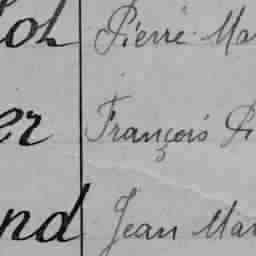 loh Pierre Mar
er François P
nd Jean Mar